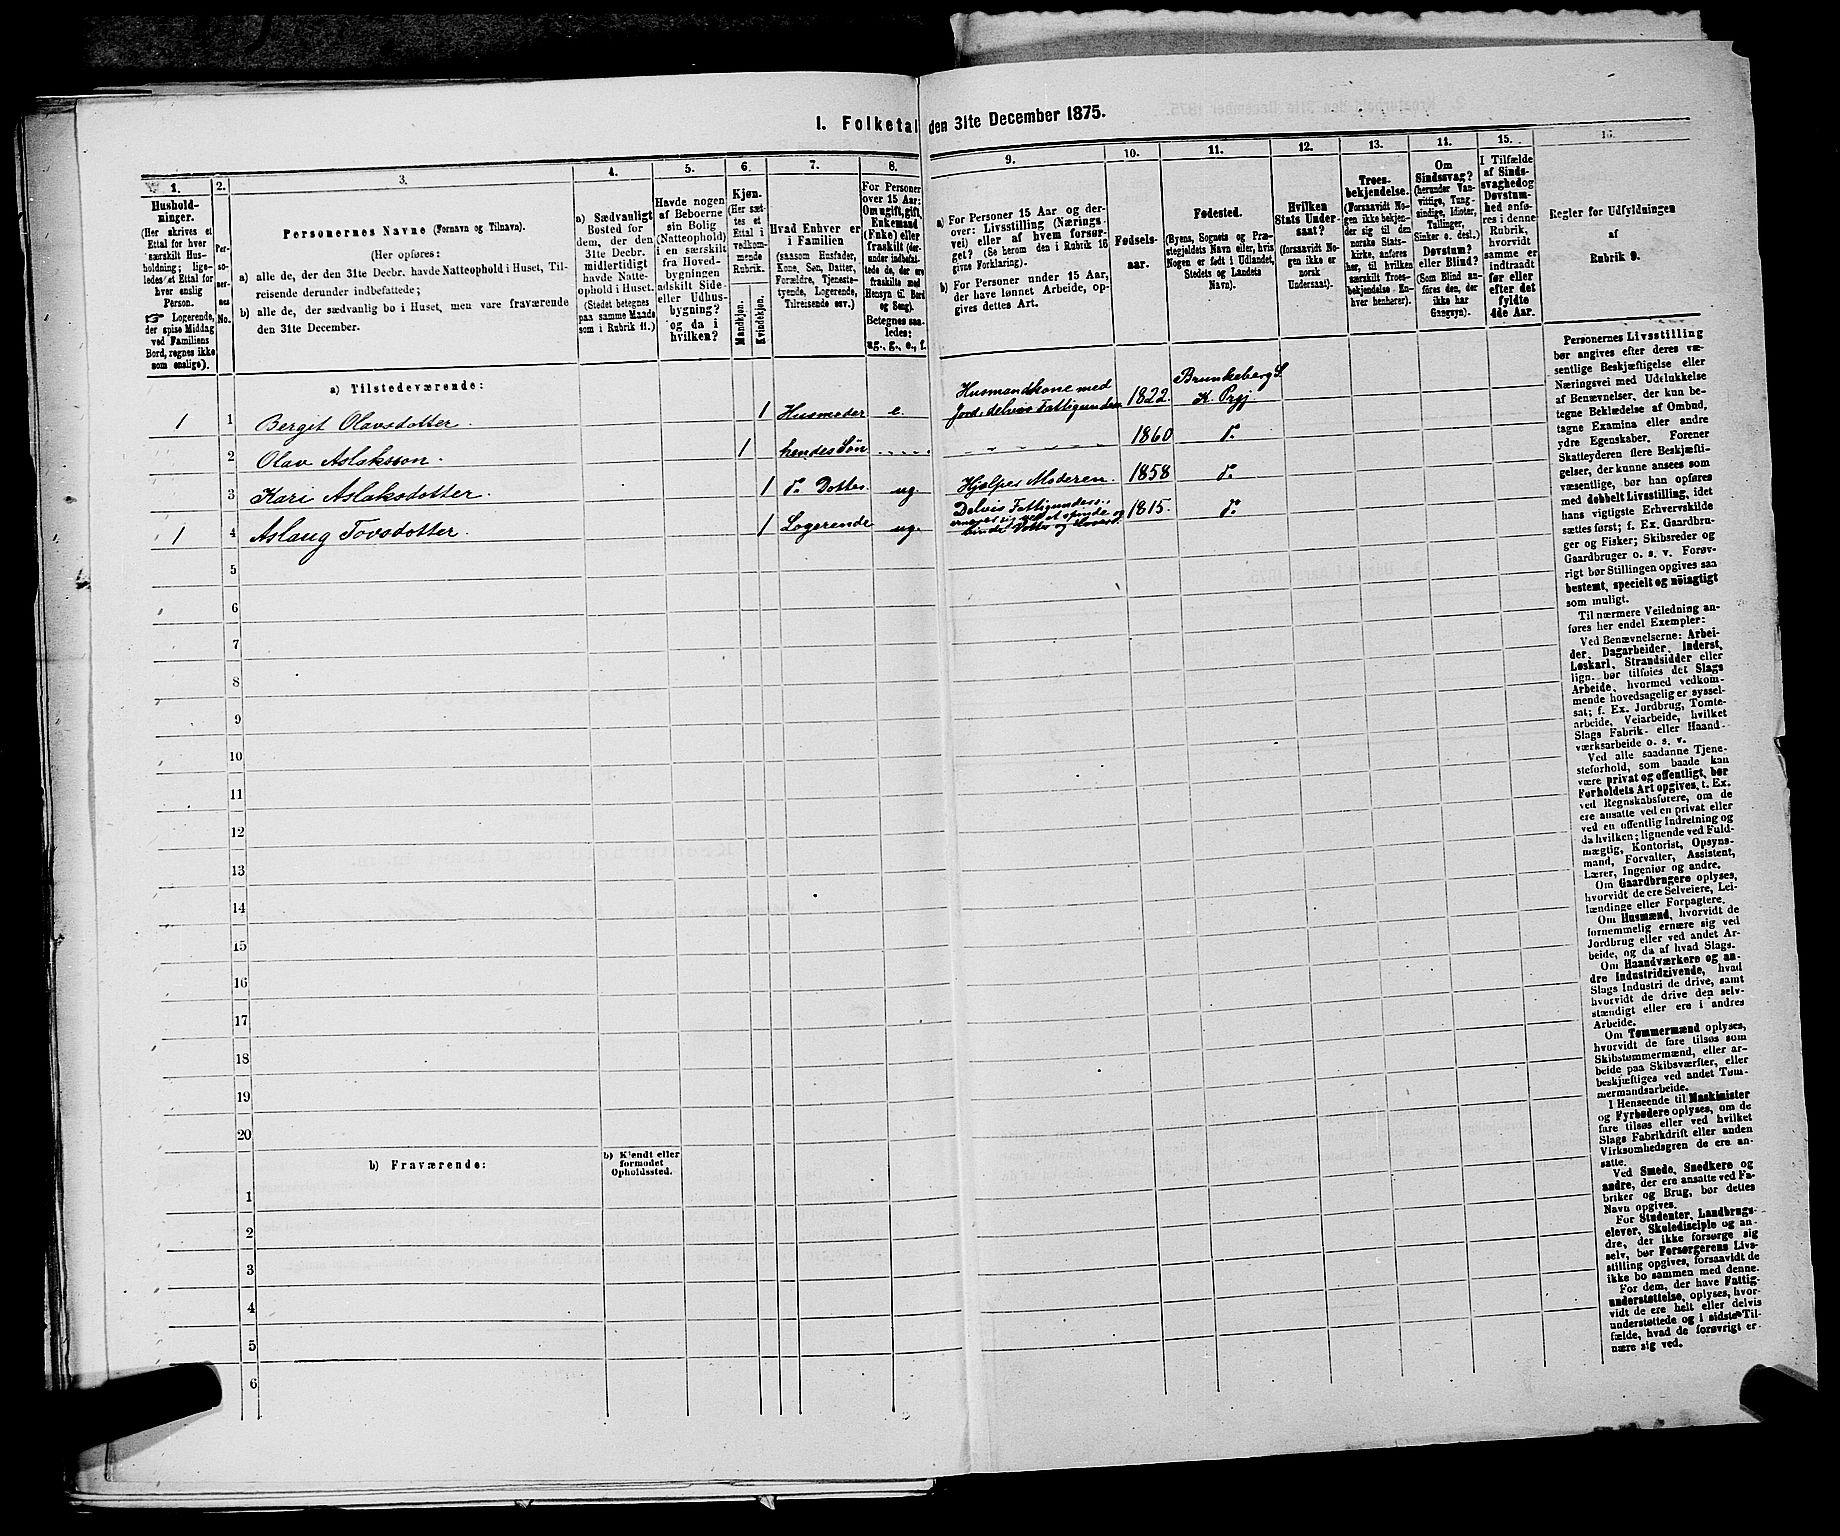 I. Folketal den 31te December 1875.
1.
Hushold-
ninger.
(Her skrives et
Ettal for hver
særskilt Hus-
holdning; lige-
ledes et Ettal for
hver enslig
Person.
☞ Logerende,
der spise Middag
ved Familiens
Bord, regnes ikke
som enslige).
2.
Per-
so-
ner-
nes
No.
3.
Personernes Navne (Fornavn og Tilnavn).
(Her opføres:
a) alle de, der den 31te Decbr. havde Natteophold i Huset, Til-
reisende derunder indbefattede;
b) alle de, der sædvanlig bo i Huset, men vare fraværende
den 31te December.
4.
a) Sædvanligt
Bosted for
dem, der den
31te Decbr.
midlertidigt
havde Natte-
ophold i Huset.
(Stedet betegnes
paa samme Maade
som i Rubrik 11.)
5.
Havde nogen
af Beboerne
sin Bolig
(Natteophold)
i en særskilt
fra Hoved-
bygningen
adskilt Side-
eller Udhus-
bygning?
og da i
hvilken?
6.
Kjøn.
(Her sæt-
tes et
Ettal i
vedkom-
mende
Rubrik.
Mandkjøn.
Kvindekjøn.
7.
Hvad Enhver er
i Familien
(saasom Husfader,
Kone, Søn, Datter,
Forældre, Tjeneste-
tyende, Logerende,
Tilreisende osv.)
8.
For Personer
over 15 Aar:
Om ugift, gift,
Enkemand
(Enke) eller
fraskilt (der-
under indbefat-
tede de, der ere
fraskilte med
Hensyn til Bord
og Seng).
Betegnes saa-
ledes:
ug., g., e., f.
9.
a) For Personer 15 Aar og der-
over: Livsstilling (Nærings-
vei) eller af hvem forsør-
get? (Se herom den i Rubrik 16
givne Forklaring).
b) For Personer under 15 Aar,
der have lønnet Arbeide, op-
gives dettes Art.
10.
Fødsels-
aar.
11.
Fødested.
(Byens, Sognets og Præ-
stegjeldets Navn eller, hvis
Nogen er født i Udlandet,
Stedets og Landets
Navn).
12.
Hvilken
Stats Under-
saat?
(forsaavidt No-
gen ikke er
norsk
Undersaat).
13.
Troes-
bekjendelse.
(Forsaavidt No-
gen ikke bekjen-
der sig til den
norske Stats-
kirke, anføres
her, til hvilken
særskilt Troes-
bekjendelse En-
hver henhører).
14.
Om
Sindssvag?
(herunder Van-
vittige, Tung-
sindige, Idioter,
Tullinger,
Sinker o. desl.)
Døvstum?
eller Blind?
(Som Blind an-
føres den, der
ikke har
Gangsyn).
15.
I Tilfælde
af Sinds-
svaghed og
Døvstum-
hed anfø-
res i denne
Rubrik,
hvorvidt
samme er
indtraadt
før eller
efter det
fyldte
4de Aar.
16.
Regler for Udfyldningen
af
Rubrik 9.
a) Tilstedeværende:
1 1 Bergit Olavsdotter. 1 Husmoder e. Husmandskone med Jord, delvis Fattigunders. 1822. Brunkeberg S. K. Prgj
2 Olav Aslakson. 1 hendes Søn 1860 d.
3 Kari Aslaksdotter. 1 d. Dotter. ug. Hjælper Moderen. 1858 d.
1 4 Aslaug Tovsdotter. 1 Logerende ug. Delvis Fattigunders.; ernærer sig ved at spinde og binde Votter og Hoser. 1815. d.
5
6
7
8
9
10
11
12
13
14
15
16
17
18
19
20
b) Fraværende:
b) Kjendt eller
formodet
Opholdssted.
1
2
3
4
5
6
Personernes Livsstilling
bør angives efter deres væ-
sentlige Beskjæftigelse eller
Næringsvei med Udelukkelse
af Benævnelser, der kun be-
tegne Beklædelse af Ombud,
tagne Examina eller andre
ydre Egenskaber. Forener
Skatteyderen flere Beskjæfti-
gelser, der kunne ansees som
væsentlige, bør han opføres
med dobbelt Livsstilling, idet
hans vigtigste Erhvervskilde
sættes først; f. Ex. Gaardbru-
ger og Fisker; Skibsreder og
Gaardbruger o. s. v. Forøv-
rigt bør Stillingen opgives saa
bestemt, specielt og nøiagtigt
som muligt.
Til nærmere Veiledning an-
føres her endel Exempler:
Ved Benævnelserne: Arbei-
der, Dagarbeider, Inderst,
Løskarl, Strandsidder eller
lign. bør tilføies det Slags
Arbeide, hvormed vedkom-
mende hovedsagelig er syssel-
sat; f. Ex. Jordbrug, Tomte-
arbeide, Veiarbeide, hvilket
Slags Fabrik- eller Haand-
værksarbeide o. s. v.
Ved alle saadanne Tjene-
steforhold, som baade kan
være privat og offentligt, bør
Forholdets Art opgives, f. Ex.
ved Regnskabsførere, om de
ere ansatte ved en privat eller
ved en offentlig Indretning og
da hvilken; lignende ved Fuld-
mægtig, Kontorist, Opsyns-
mand, Forvalter, Assistent,
Lærer, Ingeniør og andre.
Om Gaardbrugere oplyses,
hvorvidt de ere Selveiere, Lei-
lændinge eller Forpagtere.
Om Husmænd, hvorvidt de
fornemmelig ernære sig ved
Jordbrug eller ved andet Ar-
beide, og da af hvad Slags.
Om Haandværkere og an-
dre Industridrivende, hvad
Slags Industri de drive, samt
hvorvidt de drive den selv-
stændigt eller ere i andres
Arbeide.
Om Tømmermænd oplyses,
hvorvidt de fare tilsøs som
Skibstømmermænd, eller ar-
beide paa Skibsværfter, eller
beskjæftiges ved andet Tøm-
mermandsarbeide.
I Henseende til Maskinister
og Fyrbødere oplyses, om de
fare tilsøs eller ved hvilket
Slags Fabrikdrift eller anden
Virksomhedsgren de ere an-
satte.
Ved Smede, Snedkere og
andre, der ere ansatte ved Fa-
briker og Brug, bør dettes
Navn opgives.
For Studenter, Landbrugs-
elever, Skoledisciple og an-
dre, der ikke forsørge sig
selv, bør Forsørgerens Livs-
stilling opgives, forsaavidt de
ikke bo sammen med denne.
For dem, der have Fattig-
understøttelse, oplyses, hvor-
vidt de ere helt eller delvis
understøttede og i sidste Til-
fælde, hvad de forøvrigt er-
nære sig ved.